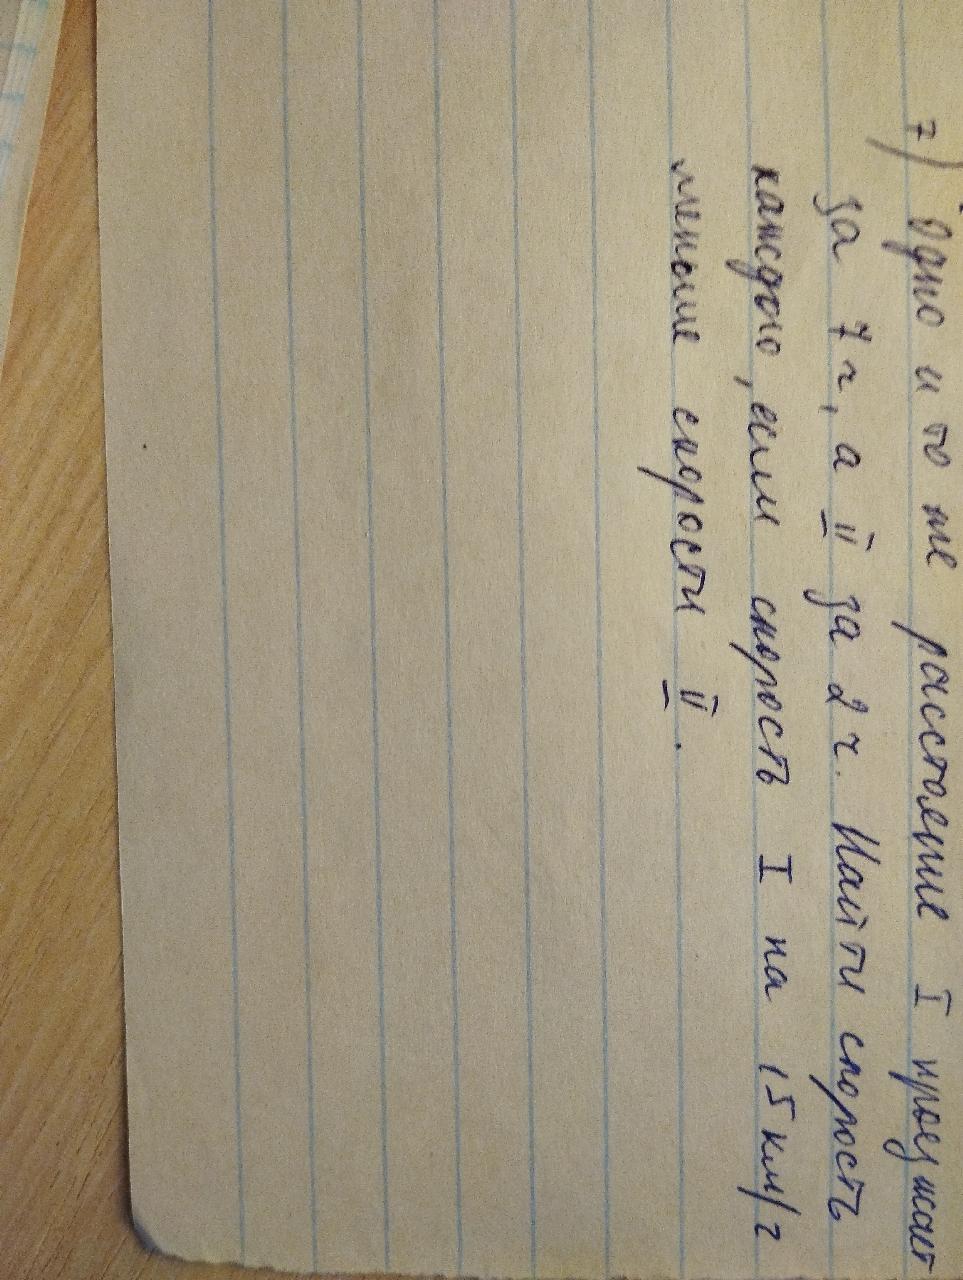 7) Одно и то же расстояние I проезжает
за 7 ч, а II за 2 ч. Найти скорость
каждого, если скорость I на 15 км/ч
меньше скорости II.